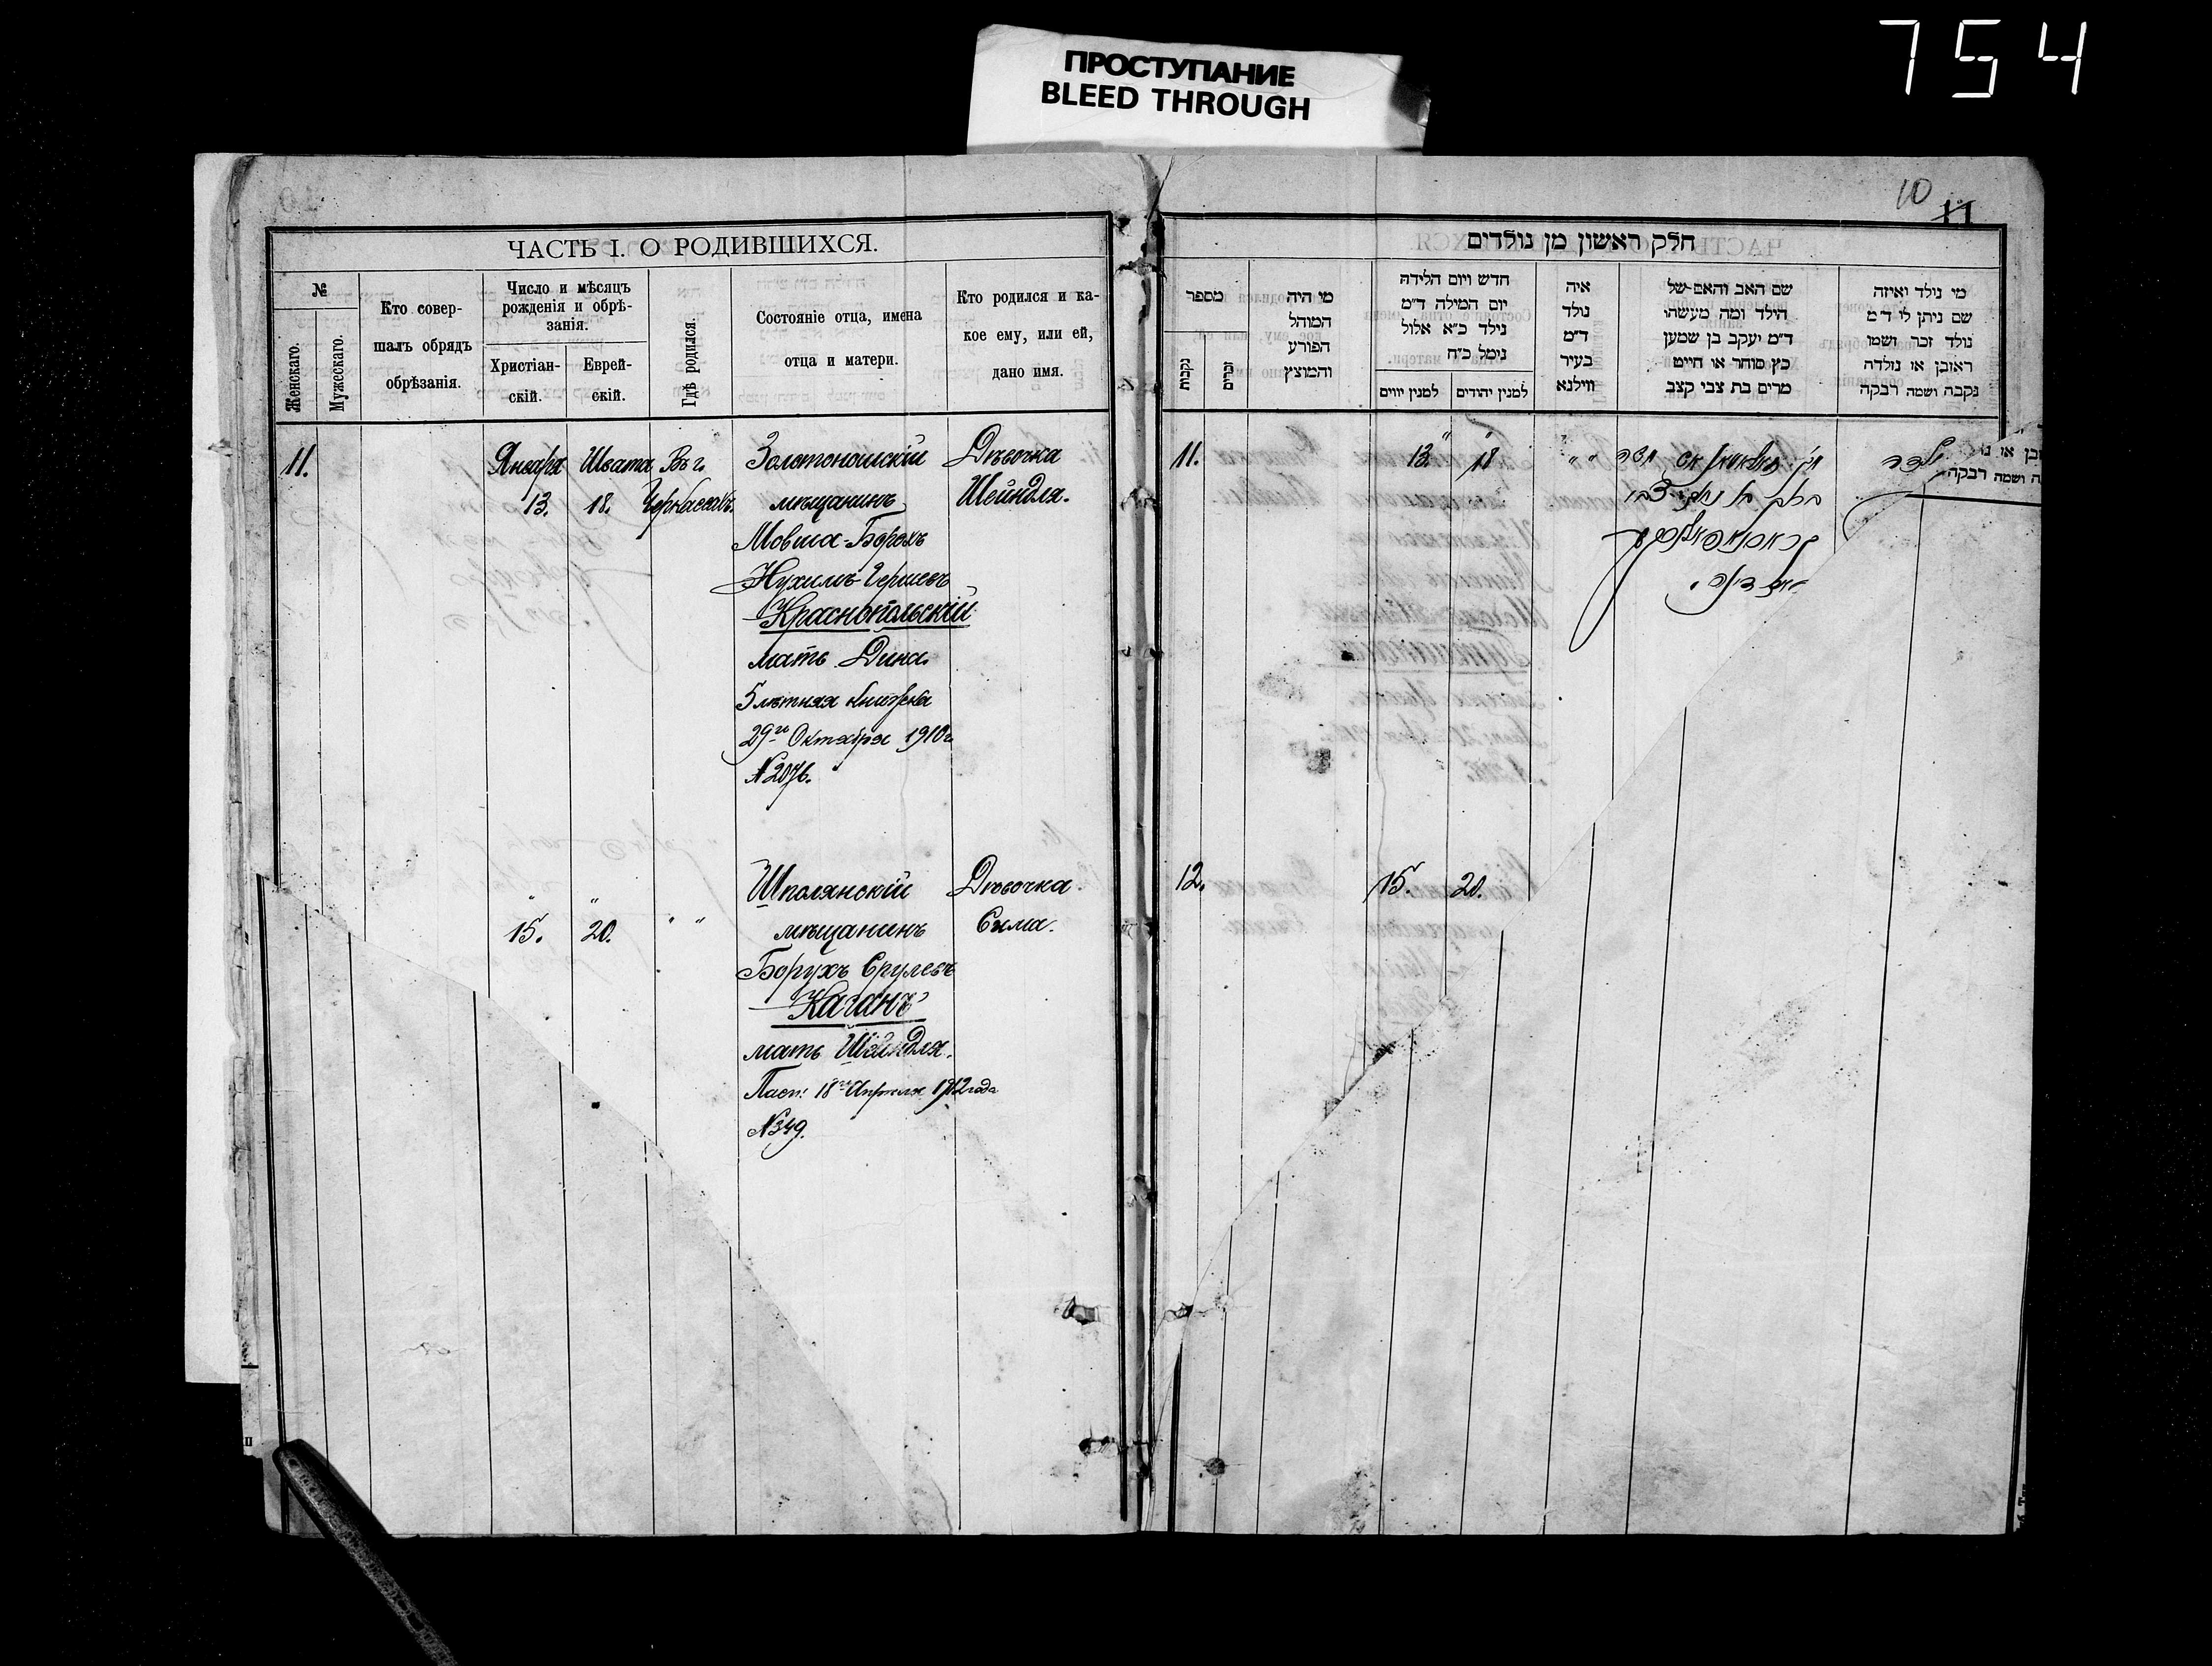 ПРОСТУПАНИЕ
BLEED THROUGH
754
ЧАСТЬ I. О РОДИВШИХСЯ.
№
Женскаго.
Мужескаго.
Кто совер-
шалъ обрядъ
обрѣзанія.
Число и мѣсяцъ
рожденія и обрѣ-
занія.
Христіан-
скій.
Еврей-
скій.
Гдѣ родился.
Состояніе отца, имена
отца и матери.
Кто родился и ка-
кое ему, или ей,
дано имя.
11.
Января
13.
Швата
18.
Въ г.
Черкассахъ.
Золотоношскій
мѣщанинъ
Мовша-Борохъ
Нухимъ-Гершевъ
Краснопольскій
мать Дина.
5 лѣтняя книжка
29го Октября 1910 г.
№ 2076.
Дѣвочка
Шейндля.
" "
15. 20. " "
Шполянскій
мѣщанинъ
Борухъ Срулевъ
Каганъ
мать Шейндля.
Пасп: 18го Апрѣля 1912 года
№ 349.
Дѣвочка
Сима.
10
11
חלק ראשון מן נולדים
מספר
נקבות
זכרים
מי היה
המוהל
הפורע
והמוצץ
חדש ויום הלידה
יום המילה ד״מ
נילד כ״א אלול
נימל כ״ח
למנין יווים
למנין יהודים
איה
נולד
ד״מ
בעיר
ווילנא
שם האב והאם של
הילד ומה מעשהו
ד״מ יעקב בן שמען
כץ סוחר או חייט
מרים בת צבי קצב
מי נולד ואיזה
שם ניתן לו ד״מ
נולד זכר ושמו
ראובן או נולדה
נקבה ושמה רבקה
11.
13. 18 " "
ושמה רבקה
12.
15. 20.